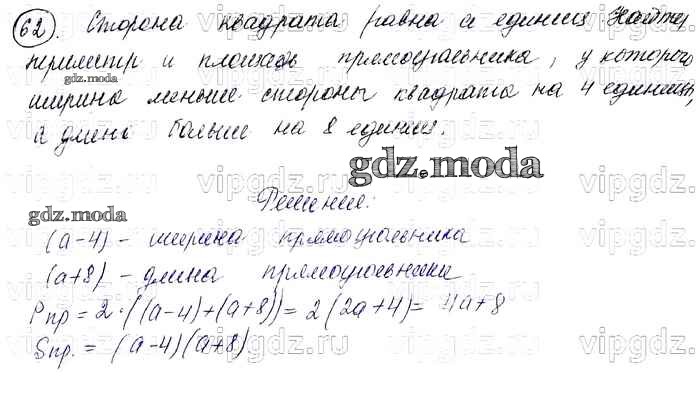 62. Сторона квадрата равна a единиц. Найти
периметр и площадь прямоугольника, у которого
gdz.moda
ширина меньше стороны квадрата на 4 единицы,
а длина больше на 8 единиц.
gdz.moda
Решение:
gdz.moda
(a-4) - ширина прямоугольника
(a+8) - длина прямоугольника
Pпр = 2·((a-4)+(a+8)) = 2(2a+4) = 4a+8
Sпр. = (a-4)(a+8)
vipgdz.ru vipgdz.ru vipgdz.ru vipgdz.ru